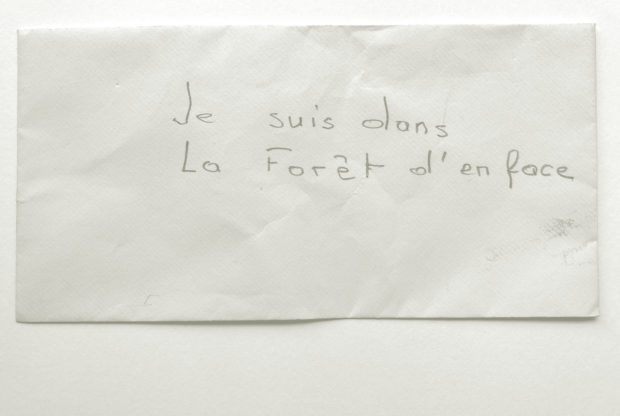 Je suis dans
La Forêt d'en face